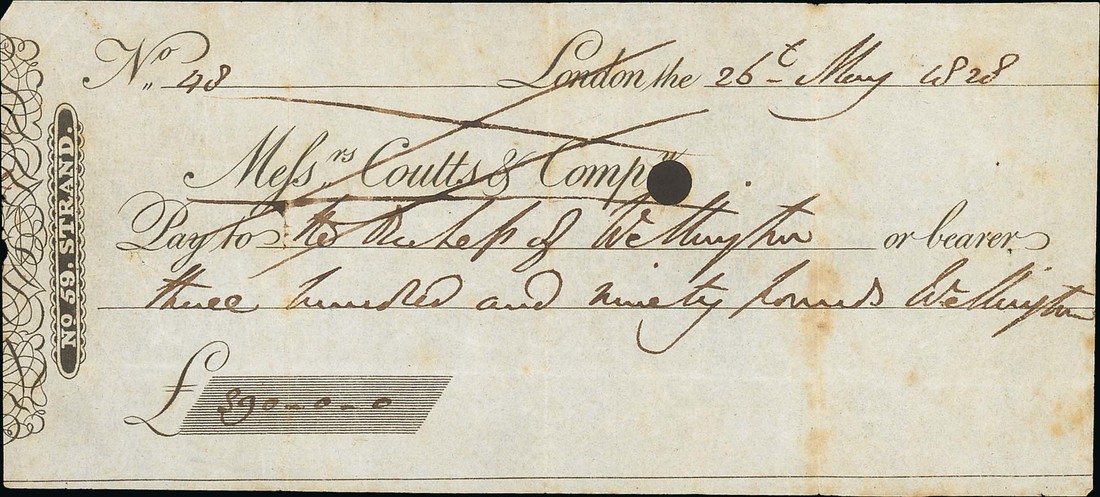 No. 48 London the 26t May 1828
No 59. STRAND.
Messrs. Coutts & Compy
Pay to the Dutchess of Wellington or bearer
three hundred and ninety pounds Wellington
£ 390-0-0